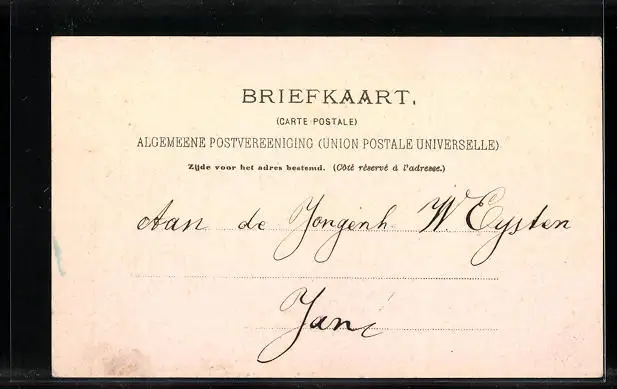 BRIEFKAART.
(CARTE POSTALE)
ALGEMEENE POSTVEREENIGING (UNION POSTALE UNIVERSELLE)
Zijde voor het adres bestemd. (Côté réservé à l'adresse.)
Aan de Jongenh. W. Eysten
Jani